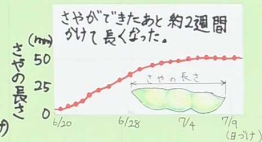 さやができたあと約2週間
かけて長くなった。
さやの長さ
(mm)
50
25
0
さやの長さ
6/20
6/28
7/4
7/9
(日づけ)